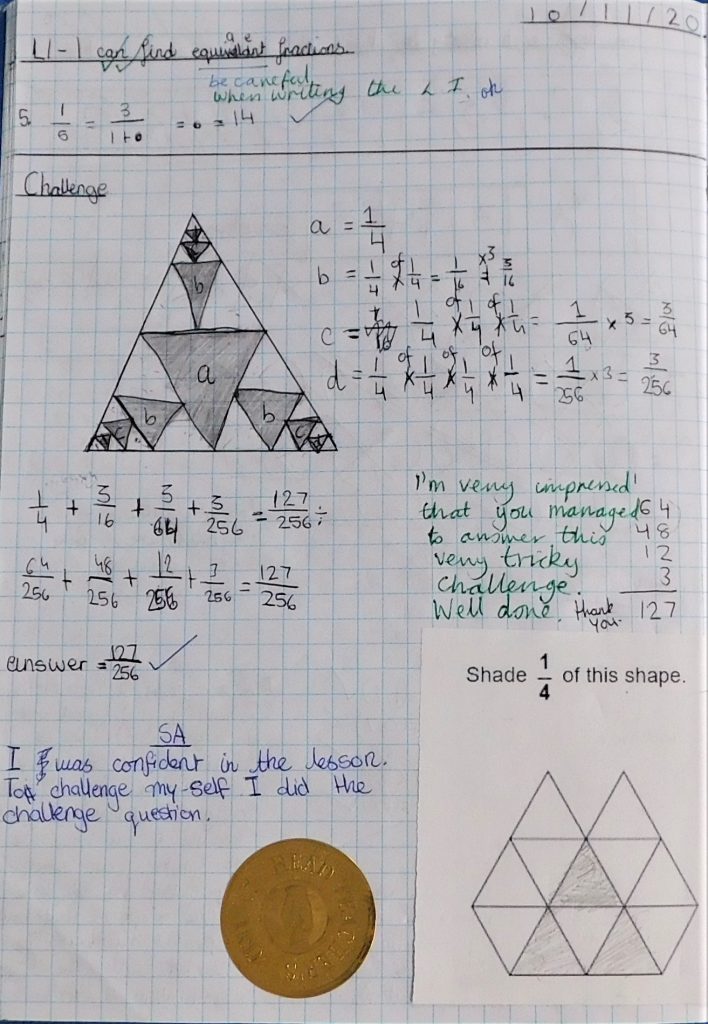 10/11/20
LI - I can find equivalent fractions
a e
be careful
when writing the L I. oh
5. 1/5 = 3/1+0 = 0 = 14
Challenge
a = 1/4
b = 1/4 of 1/4 = 1/16 ×3 = 3/16
c = 1/4 of 1/4 of 1/4 = 1/64 × 3 = 3/64
d = 1/4 of 1/4 of 1/4 of 1/4 = 1/256 × 3 = 3/256
a
b
b
b
c
1/4 + 3/16 + 3/64 + 3/256 = 127/256
64/256 + 48/256 + 12/256 + 3/256 = 127/256
answer = 127/256
I'm very impressed
that you managed
to answer this
very tricky
challenge.
Well done. Thank you.
64
48
12
3
127
SA
I was confident in the lesson.
To challenge my-self I did the
challenge question.
HEAD TEACHER'S
Shade 1/4 of this shape.